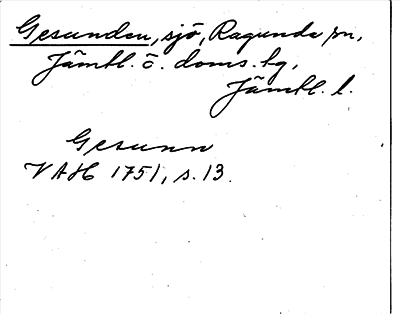 Gesunden, sjö, Ragunda sn,
Jämtl. ö. doms. hg,
Jämtl. l.
Gesunn
VAH 1751, s. 13.